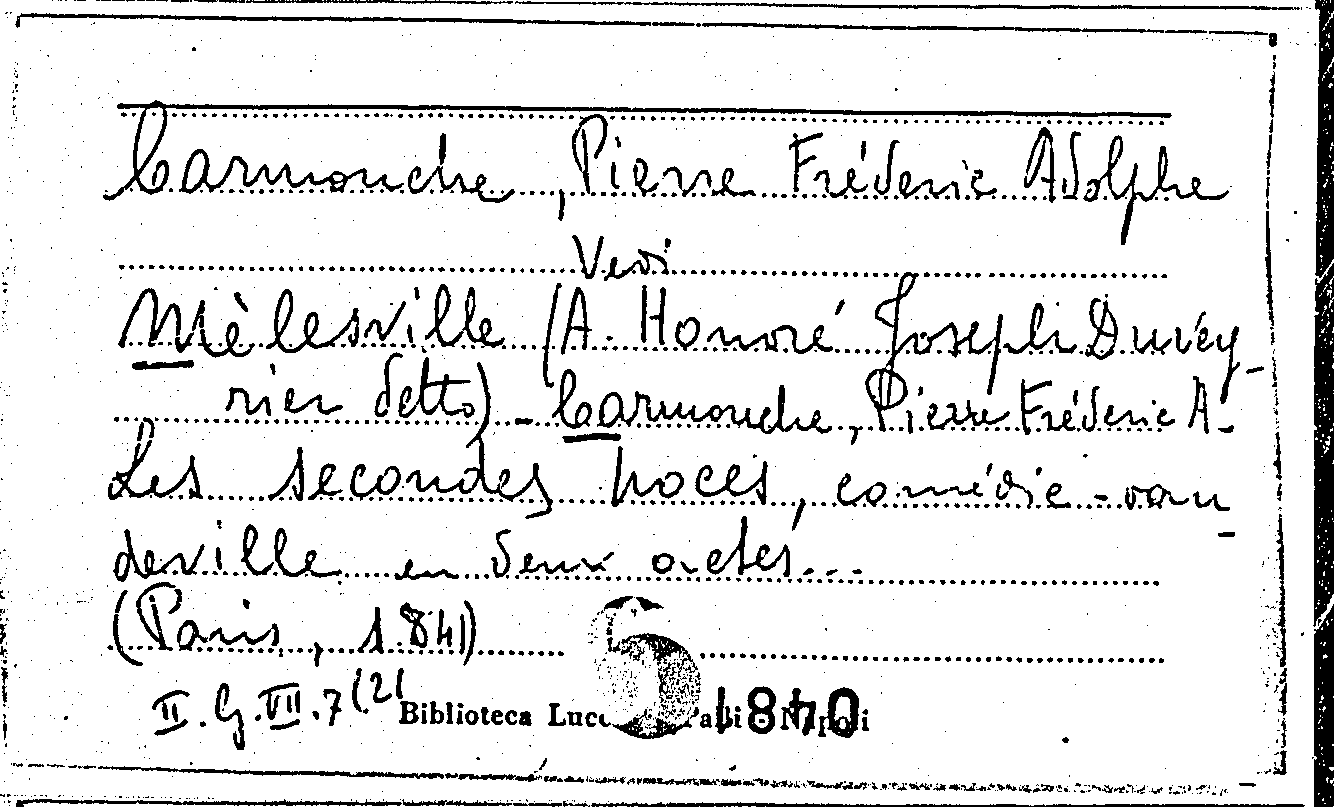 Carmouche, Pierre Fréderic Adolphe
Vedi
Mèlesville (A. Honoré Joseph Duvey-
rier detto) - Carmouche, Pierre Fréderic A.
Les secondes noces, comédie-vau
deville en deux actes...
(Paris, 1841)
II. G. VII. 7(2(
Biblioteca Lucchesi Palli - Napoli